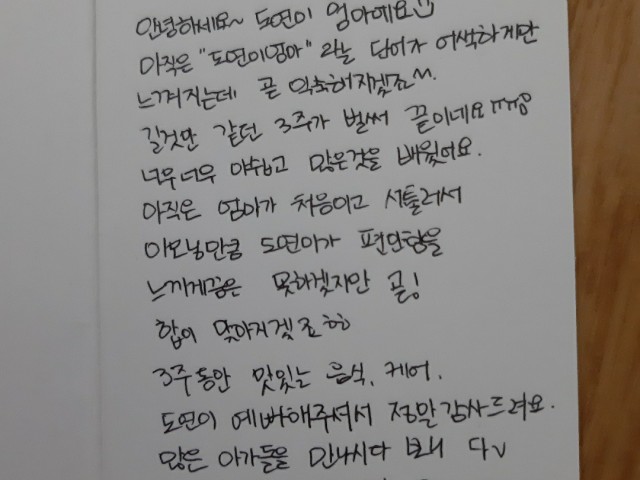 안녕하세요~ 도연이 엄마예요☺
아직은 "도연이엄마" 라는 단어가 어색하게만
느껴지는데 곧 익숙해지겠죠^^.
길것만 같던 3주가 벌써 끝이네요ㅠㅠ
너무너무 아쉽고 많은것을 배웠어요.
아직은 엄마가 처음이고 서툴러서
이모님만큼 도연이가 편안함을
느끼게끔은 못하겠지만 곧!
합이 맞아지겠죠 ㅎㅎ
3주동안 맛있는 음식, 케어,
도연이 예뻐해주셔서 정말감사드려요.
많은 아가들을 만나시다 보니